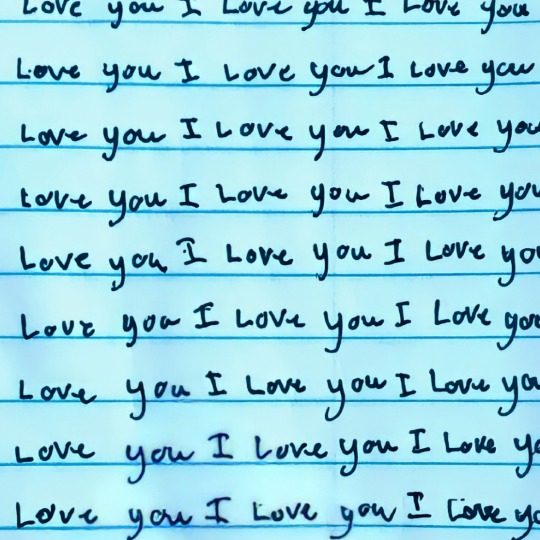 Love you I Love you I Love you
Love you I Love you I Love you
Love you I Love you I Love you
Love you I Love you I Love you
Love you I Love you I Love yo
Love you I Love you I Love you
Love you I Love you I Love yo
Love you I Love you I Love yo
Love you I Love you I Love yo